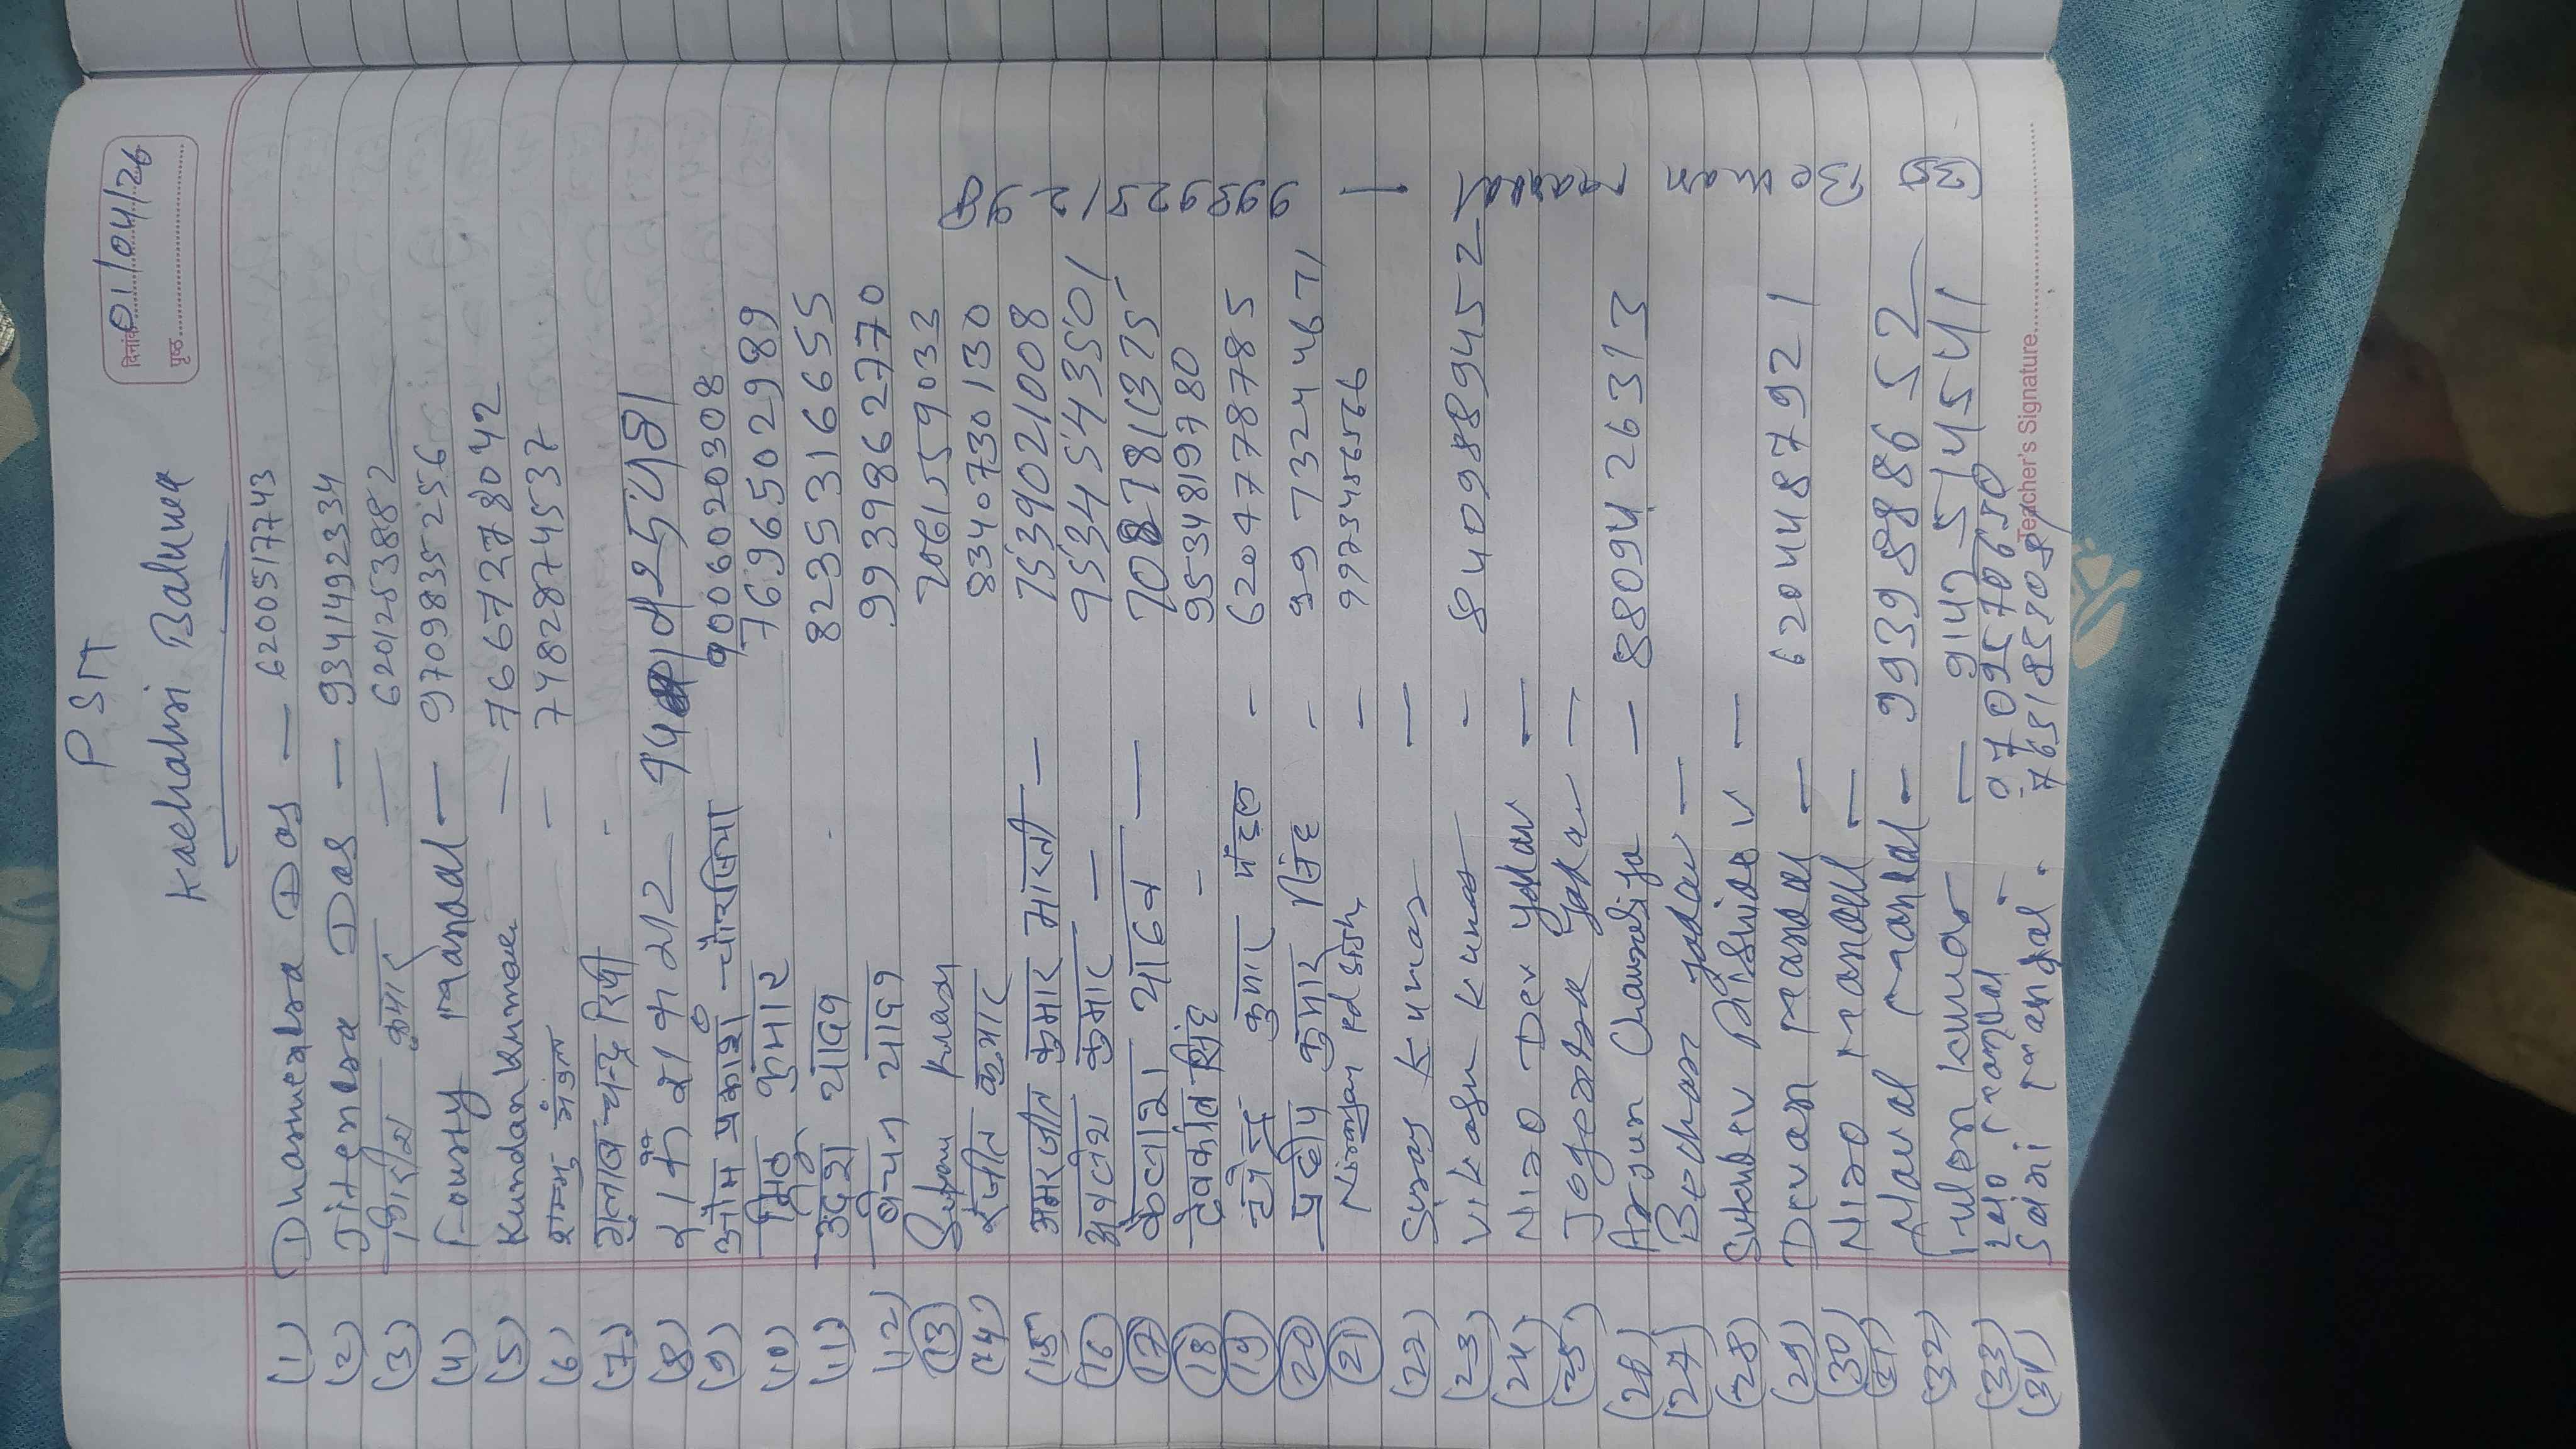 PSM
दिनांक 01/04/26
पृष्ठ
Kachahri Baluwa
(1) Dharmendra Das — 6200517743
(2) Jitendra Das — 9341492334
(3) गिरीश कुमार — 6201253882
(4) Foursty mandal — 9709835256
(5) Kundan Kumar — 7667278042
(6) शम्भु मंडल — 7482874537
(7) गुलाब चन्द्र रिषी -
(8)
(9) ओम प्रकाश चौरसिया 9006020308
(10) कुमार 7696502989
(11) उदेश यादव 8235316655
(12) यादव 9939862770
(13) 7061559033
(14) रंजीत कुमार 8340730130
(15) अमरजीत कुमार भारती — 7539021008
(16) अवलेश कुमार — 9534543501
(17) कैलाश यादव — 7087811375
(18) देवकांत सिंह - 9534819780
(19) कुमार मंडल - 6204778785
(20) प्रदीप कुमार सिंह - 9973244671
(21) Niranjan Pd Sish - 9972348656
(22) Suraj Kumar —
(23) Vikash Kumar - 8409889452
(24) Niro Dev yadav —
(25) Jogendra yadav —
(26) Arjun Chaurasiya — 8809426313
(27) Bechan yadav —
(28) Sukhdev Rishidev —
(29) Devan mandal — 6204487921
(30) Niro mandal —
(31) Naval mandal - 9939888652
(32) Kumar — 9142514541
(33) mandal - 9709570650
(34) mandal. 7631857087
(35) Bechan mandal — 9959925129
Teacher's Signature